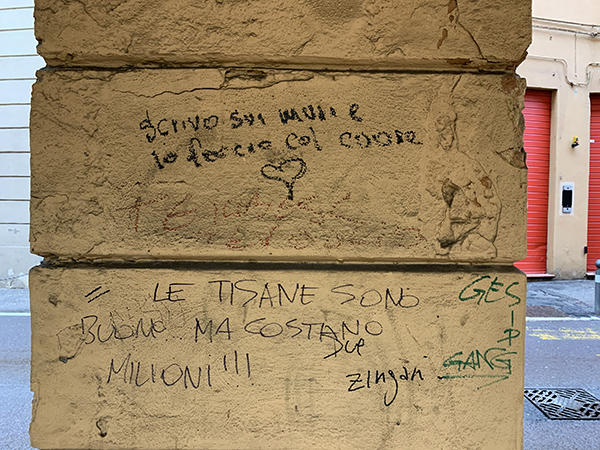 Scrivo sui muri e
lo faccio col cuore
= LE TISANE SONO
BUONO MA COSTANO
MILIONI!!!
Due
zingari
GES
I
P
GANG